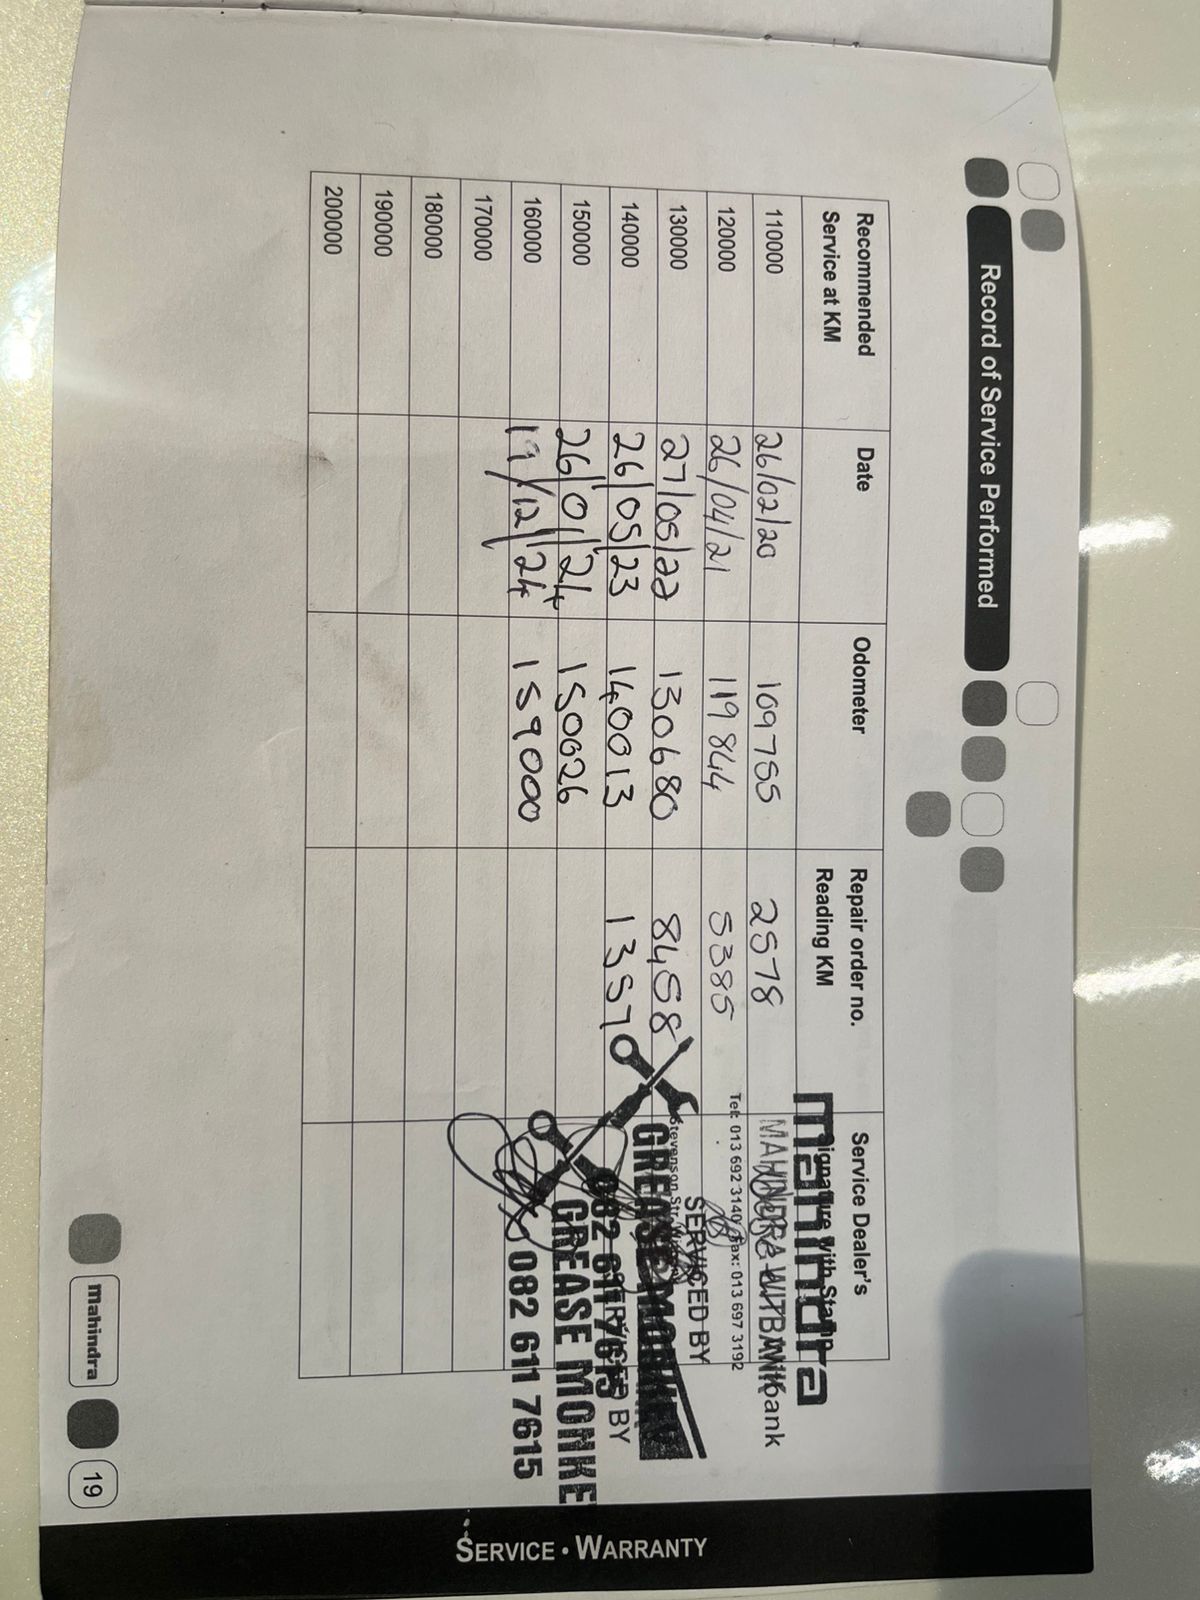 Record of Service Performed
Recommended Service at KM Date Odometer Repair order no. Reading KM Service Dealer's Signature with Stamp
110000 26/02/20 109755 2578
120000 26/04/21 119844 5385
130000 27/05/22 130680 8458
140000 26/05/23 140013 1357
150000 26/01/24 150026
160000 19/12/24 159000
170000
180000
190000
200000
mahindra
MAHINDRA WITBANK
Tel: 013 692 3140 Fax: 013 697 3192
Stevenson Str.
SERVICED BY
GREASE MONKEY
082 611 7615
SERVICED BY
GREASE MONKE
082 611 7615
Mahindra
19
SERVICE • WARRANTY